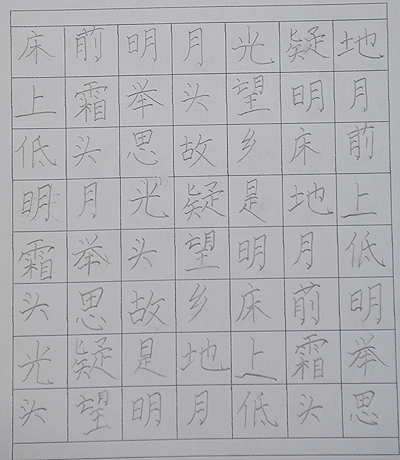 床前明月光疑地
上霜举头望明月
低头思故乡床前
明月光疑是地上
霜举头望明月低
头思故乡床前明
光疑是地上霜举
头望明月低头思